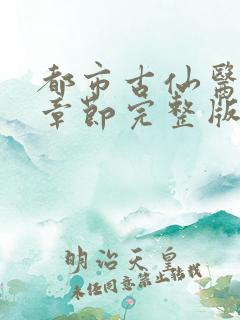 都市古仙醫
章節完整版
明治天皇
未经同意禁止转载